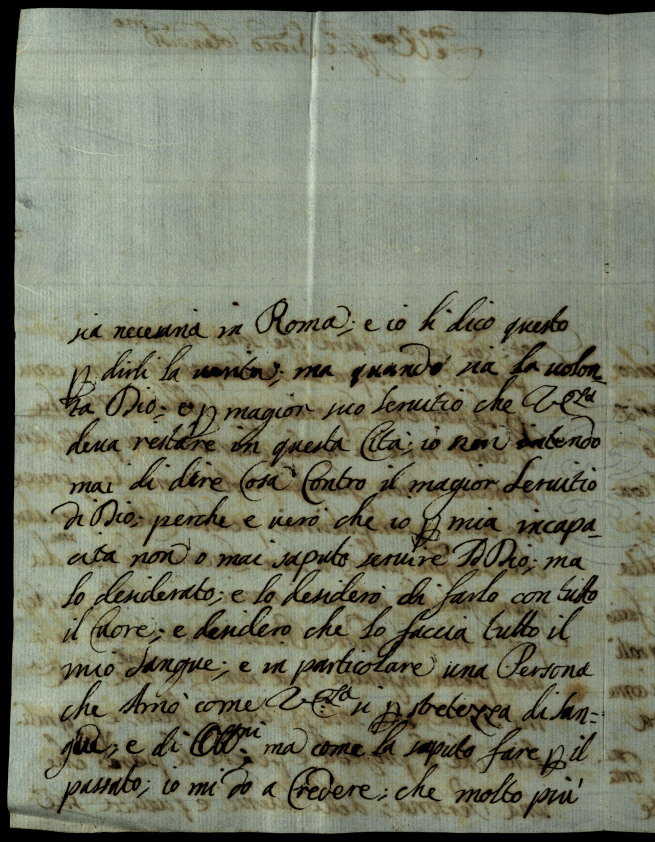 sia necessaria in Roma; e io li dico questo
ꝑ dirli la verita; ma quando sia la volon=
ta Dio; e ꝑ magior suo servitio che V.S.ra
deva restare in questa Cita; io non intendo
mai di dire Cosa Contro il magior Servitio
di Dio; perche e vero che io ꝑ mia incapa=
cita non o mai saputo servire Dio; ma
lo desiderato; e lo desidero di farlo con tutto
il Cuore; e desidero che lo faccia tutto il
mio Sangue; e in particolare una Persona
che Amo come V.S.ra si ꝑ stretezza di San=
gue; e di ma come la saputo fare ꝑ il
passato; io mi do a Credere; che molto piu